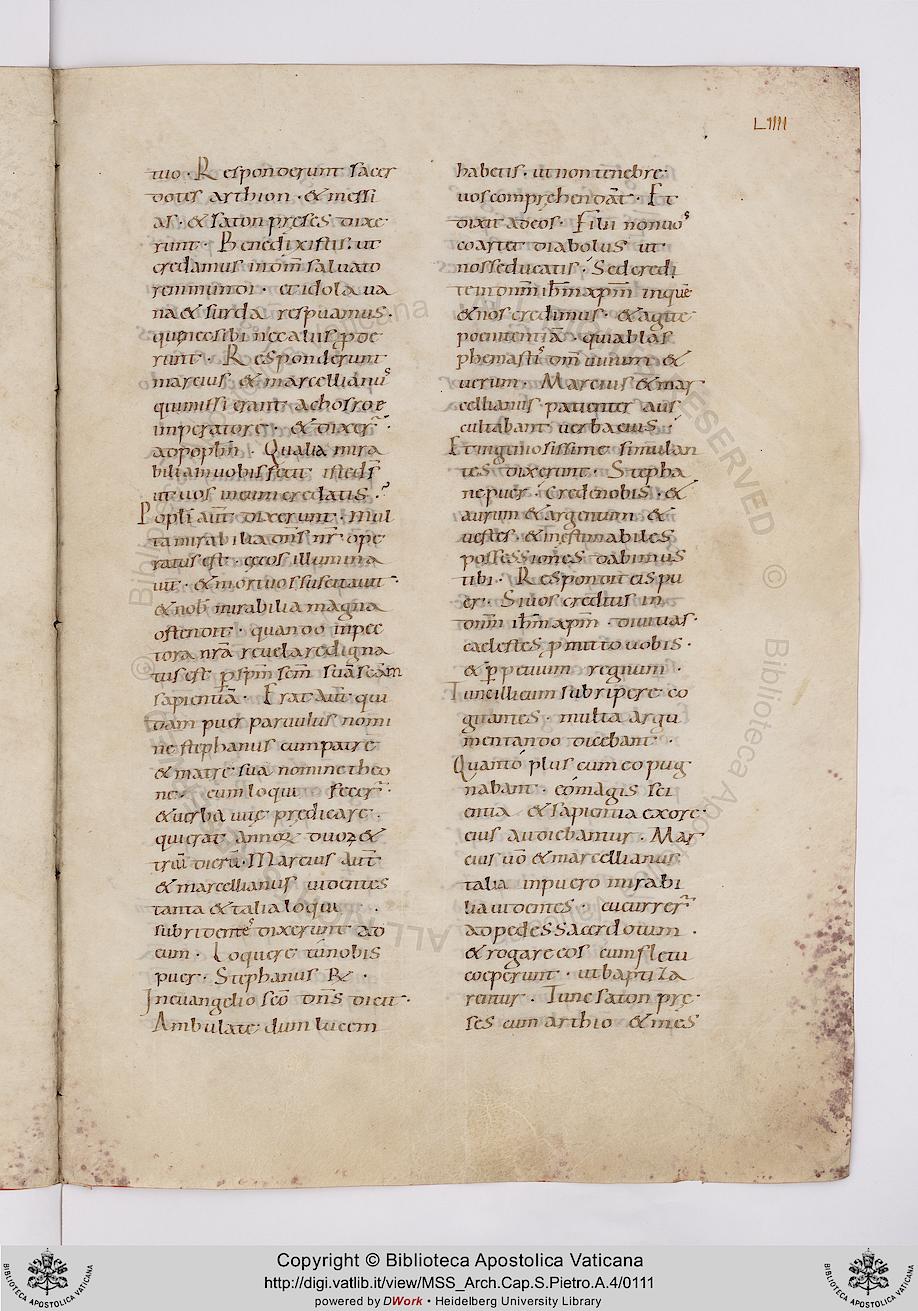 LIIII
tuo · Responderunt sacer
dotes arthion · & messi
as · & saton preses dixe
runt · Benedixistis ut
credamus in dm̄ saluato
rem mundi · et idola ua
na & surda respuamus ·
que nec sibi nec aliis pode
runt · Responderunt
marcius & marcellianus
qui missi erant a chosroe
imperatore · & dixer̄ ·
ad poplm̄ · Qualia mira
bilia in uobis fecit iste ds̄
ut uos in eum credatis ·
Popli aut̄ dixerunt · Mul
ta mirabilia dn̄s nr̄ ope
ratus est · cecos illumina
uit · & mortuos suscitauit ·
& nob̄ mirabilia magna
ostendit · quando in pec
tora nr̄a reuelare digna
tus est p sp̄m sc̄m suā sc̄am
sapientiā · Erat aut̄ qui
dam puer paruulus nomi
ne stephanus cum patre
& matre sua nomine theo
ne · cum loqui fecer̄ ·
& uerba uite predicare ·
qui erat annoꝝ duoꝝ &
triū dierū · Marcius aut̄
& marcellianus uidentes
tanta & talia loqui ·
subridentes dixerunt ad
eum · Loquere tū nobis
puer · Stephanus R& ·
In euangelio suo dn̄s dicit ·
Ambulate dum lucem
habetis · ut non tenebre
uos comprehendāt · Et
dixit ad eos · Filii non uos
coartet diabolus ut
nos seducatis · Sed credi
te in dnm̄ ih̄m xpm̄ in quē
& nos credimus · & agite
poenitentiā · quia blas
phemastis dm̄ uiuum &
uerum · Marcius & mar
cellianus patienter aus
cultabant uerba eius ·
Et ingeniosissime simulan
tes dixerunt · Stepha
ne puer · Crede nobis · &
aurum & argentum &
uestes & inestimabiles
possessiones dabimus
tibi · Respondit eis pu
er · Si uos creditis in
dnm̄ ih̄m xpm̄ · diuitias
caelestes pmitto uobis ·
& ppetuum regnum ·
Tunc illi eum subripere co
gitantes · multa argu
mentando dicebant ·
Quanto plus cum eo pug
nabant · eo magis sci
entia & sapientia ex ore
eius audiebantur · Mar
cius uō & marcellianus
talia in puero mirabi
lia uidentes · cucurrer̄
ad pedes sacerdotum ·
& rogare eos cum fletu
coeperunt · ut baptiza
rentur · Tunc saton pre
ses cum arthio & mes
Copyright © Biblioteca Apostolica Vaticana
http://digi.vatlib.it/view/MSS_Arch.Cap.S.Pietro.A.4/0111
powered by DWork • Heidelberg University Library